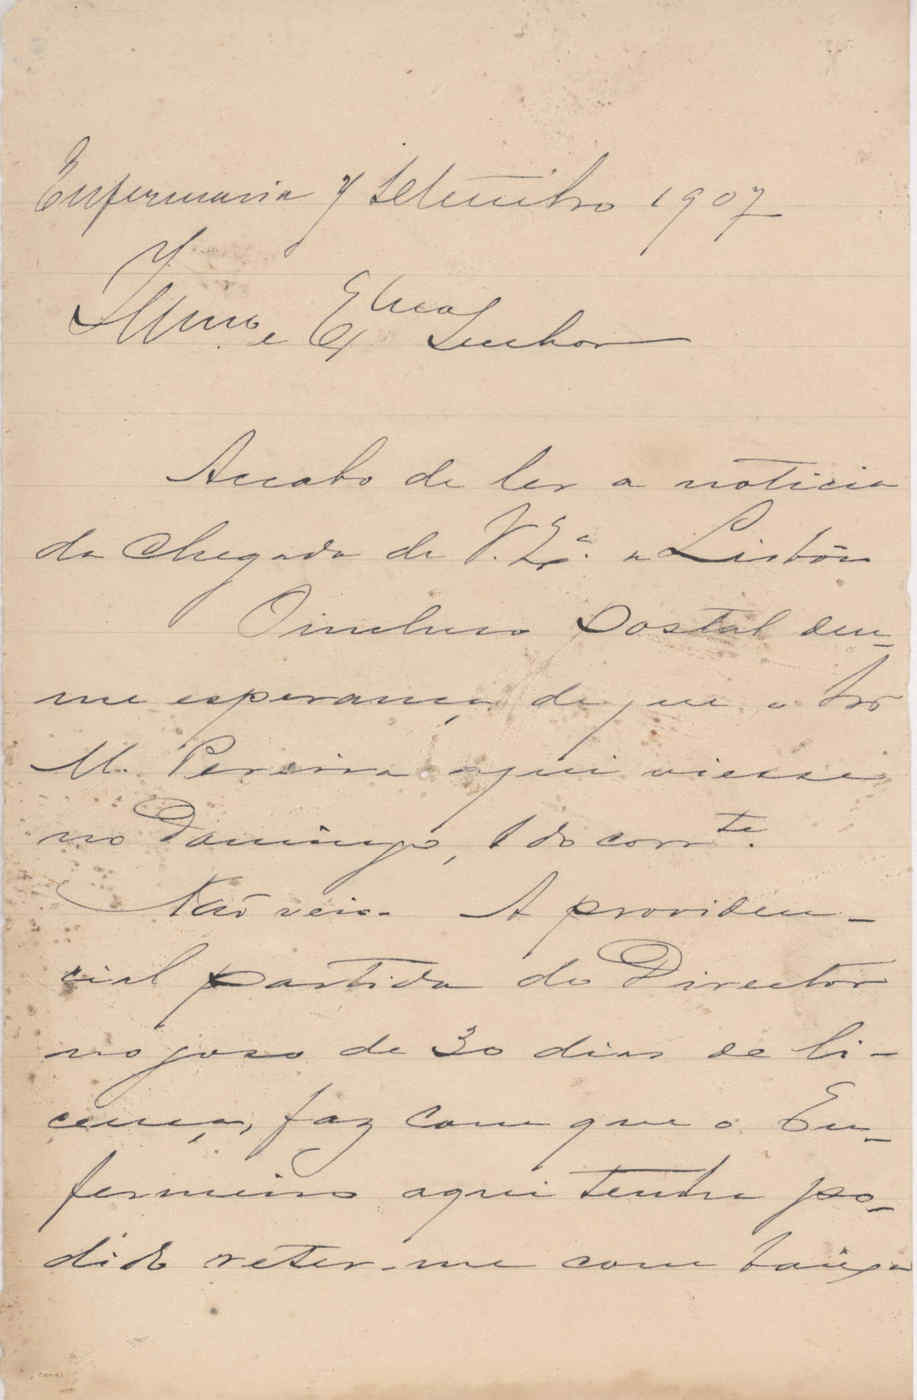 Enfermaria 7 Setembro 1907
Illmo e Exmo Senhor
Accabo de ler a noticia
da chegada de V. Exª. a Lisbôa
O incluso postal deu-
me esperança de que o Dr
M. Pereira aqui viesse
no Domingo, 1 do corrte.
Não veio. A providen-
cial partida do Director
no goso de 30 dias de li-
cença, faz com que o En-
fermeiro aqui tenha po-
dido reter-me com baixa